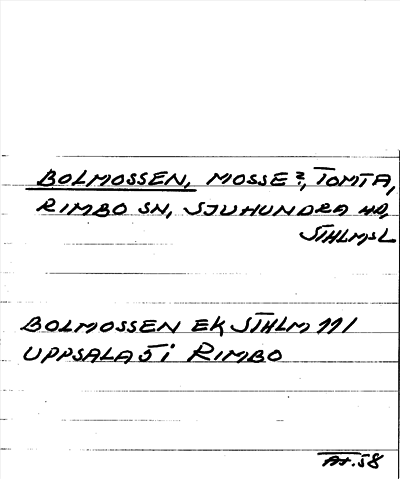 BOLMOSSEN, MOSSE?, TOMTA,
RIMBO SN, SJUHUNDRA HD,
STHLMSL
BOLMOSSEN EK STHLM 111
UPPSALA 5 i RIMBO
.58